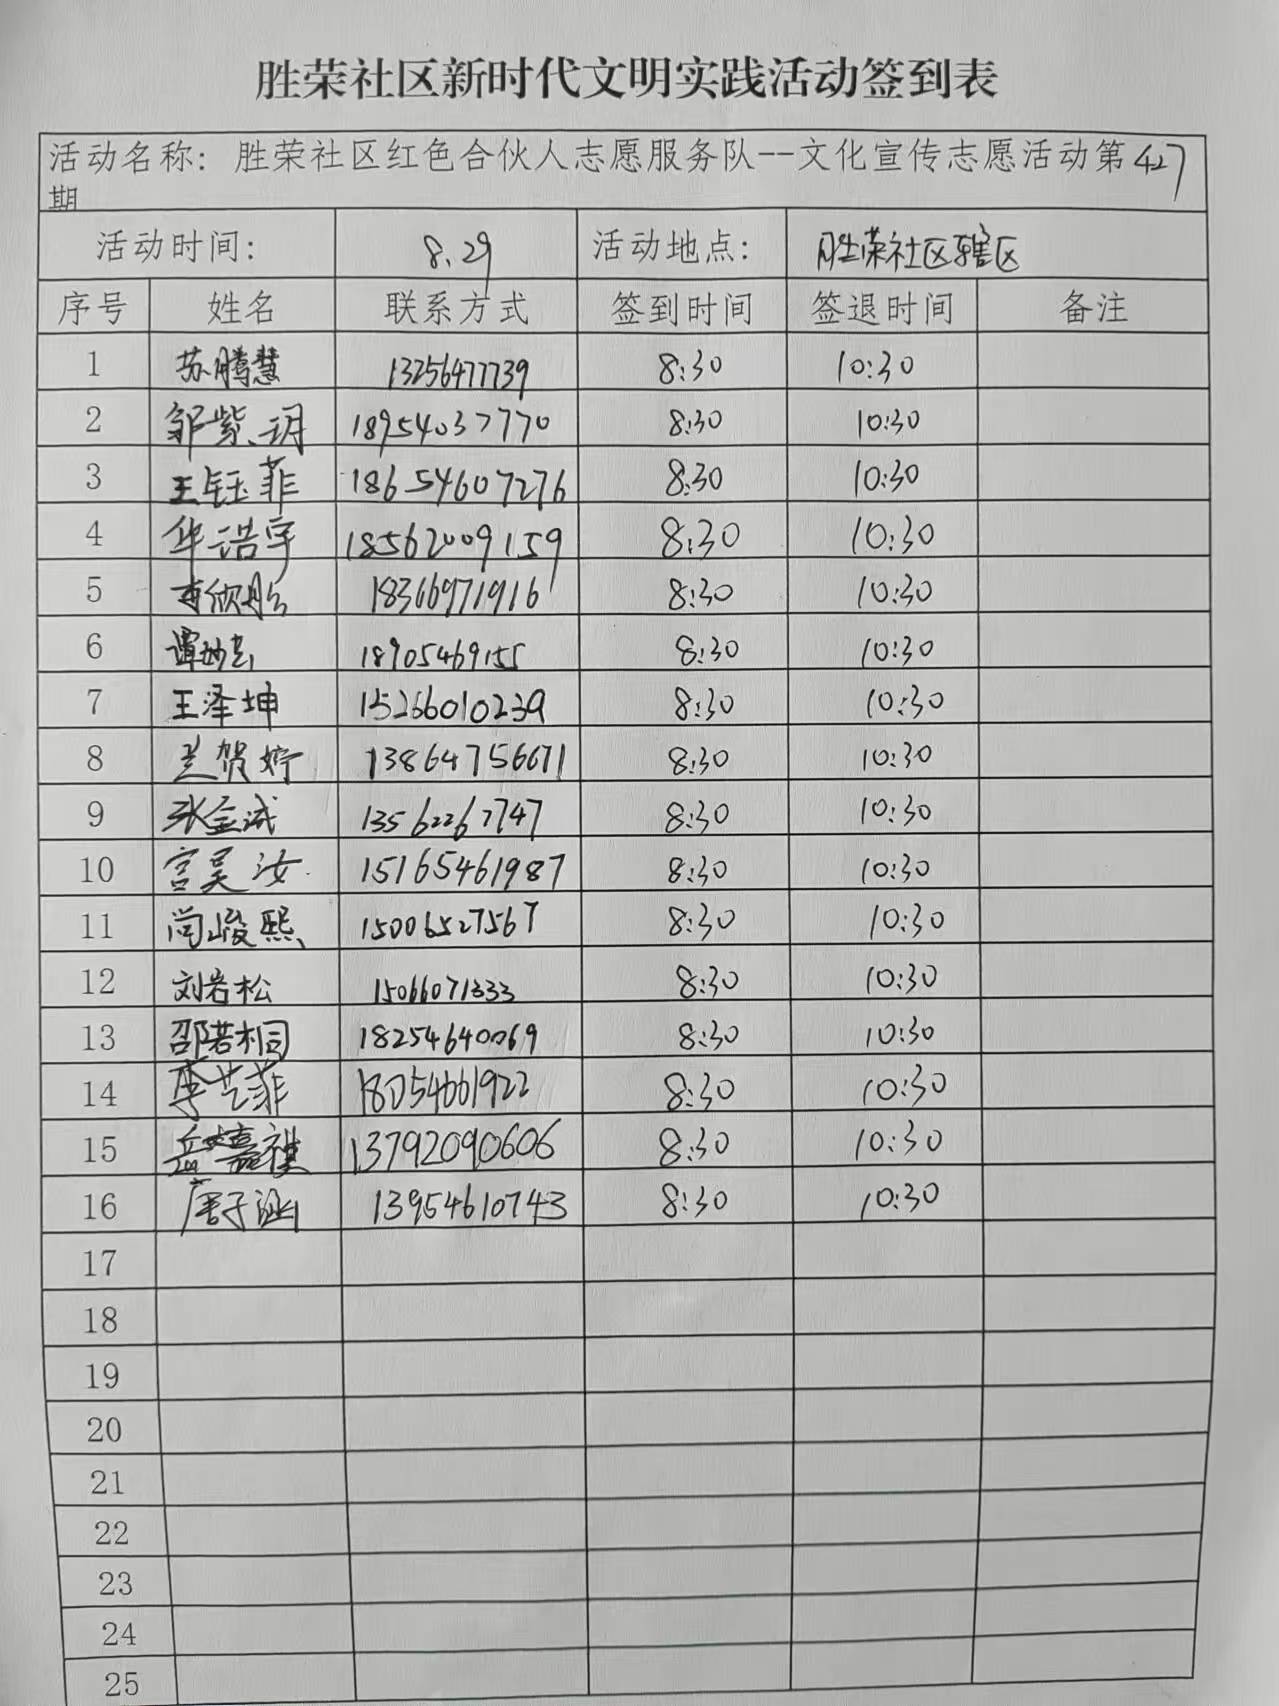 胜荣社区新时代文明实践活动签到表
活动名称：胜荣社区红色合伙人志愿服务队--文化宣传志愿活动第427
期
活动时间： 8.29 活动地点： 胜荣社区辖区
序号 姓名 联系方式 签到时间 签退时间 备注
1 苏腾慧 13256477739 8:30 10:30
2 邹紫玥 18954037770 8:30 10:30
3 王钰菲 18654607276 8:30 10:30
4 华浩宇 18562009159 8:30 10:30
5 18366971916 8:30 10:30
6 谭 18905469155 8:30 10:30
7 王泽坤 15266010239 8:30 10:30
8 兰贺婷 13864756671 8:30 10:30
9 张金诚 13562267747 8:30 10:30
10 宫昊汝 15165461987 8:30 10:30
11 尚峻熙 15006527567 8:30 10:30
12 刘岩松 15066071333 8:30 10:30
13 邵若桐 18254640069 8:30 10:30
14 李艺菲 18054661922 8:30 10:30
15 岳嘉祺 13792090606 8:30 10:30
16 唐子涵 13954610743 8:30 10:30
17
18
19
20
21
22
23
24
25